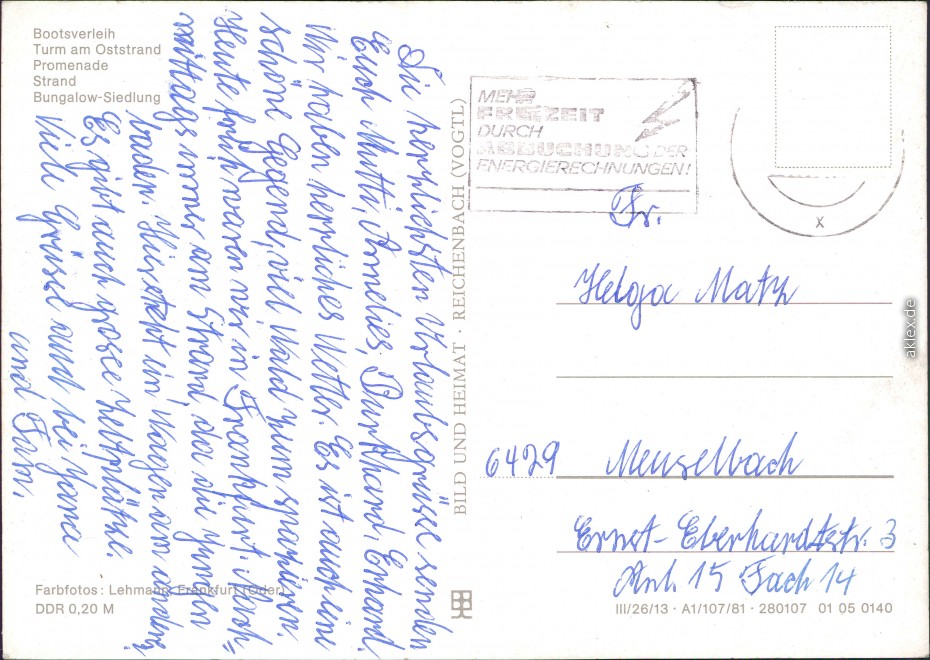 Bootsverleih
Turm am Oststrand
Promenade
Strand
Bungalow-Siedlung
Die herrlichsten Urlaubsgrüsse senden
Euch Mutti, Annelies, Burkhard, Erhard.
Wir haben herrliches Wetter. Es ist auch eine
schöne Gegend, viel Wald zum spazieren.
Heute früh waren wir in Frankfurt. Nach=
mittags immer am Strand, da die Jungen
baden. Hier steht ein Wagen am andern.
Es gibt auch grosse Zeltplätze.
Viele Grüsse auch bei Jana
und Fam.
Farbfotos: Lehmann, Frankfurt (Oder)
DDR 0,20 M
BILD UND HEIMAT · REICHENBACH (VOGTL)
MEHR
FREIZEIT
DURCH
ABBUCHUNG DER
ENERGIERECHNUNGEN!
x
Fr.
Helga Matz
6429 Meuselbach
Ernst-Eberhardtstr. 3
Anh. 15 Fach 14
III/26/13 · A1/107/81 · 280107 01 05 0140
aklex.de